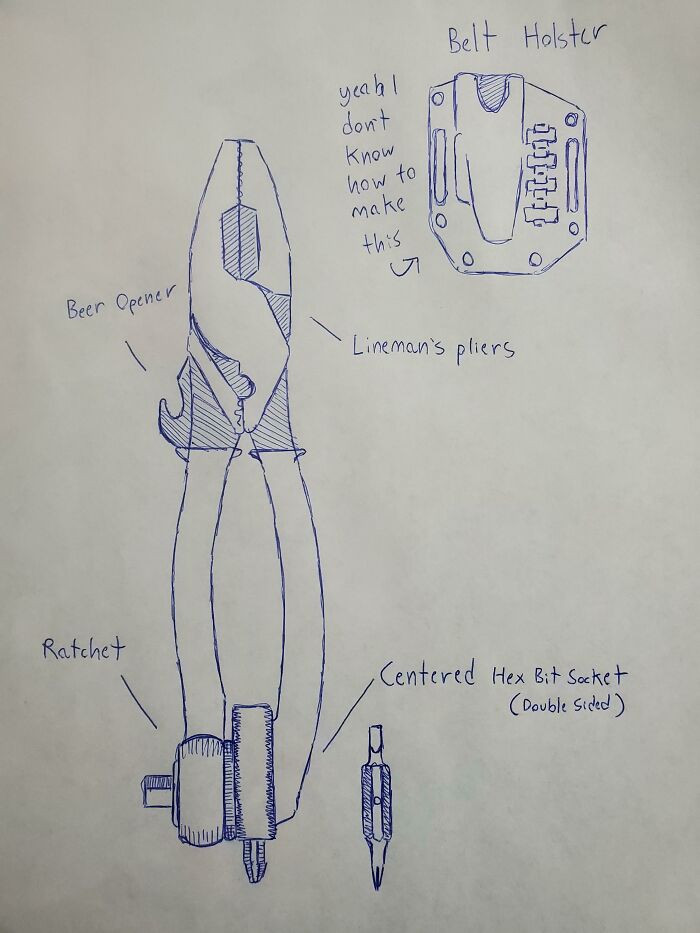 Belt Holster
yeah I
don't
know
how to
make
this
Beer Opener
Lineman's pliers
Ratchet
Centered Hex Bit Socket
(Double Sided)